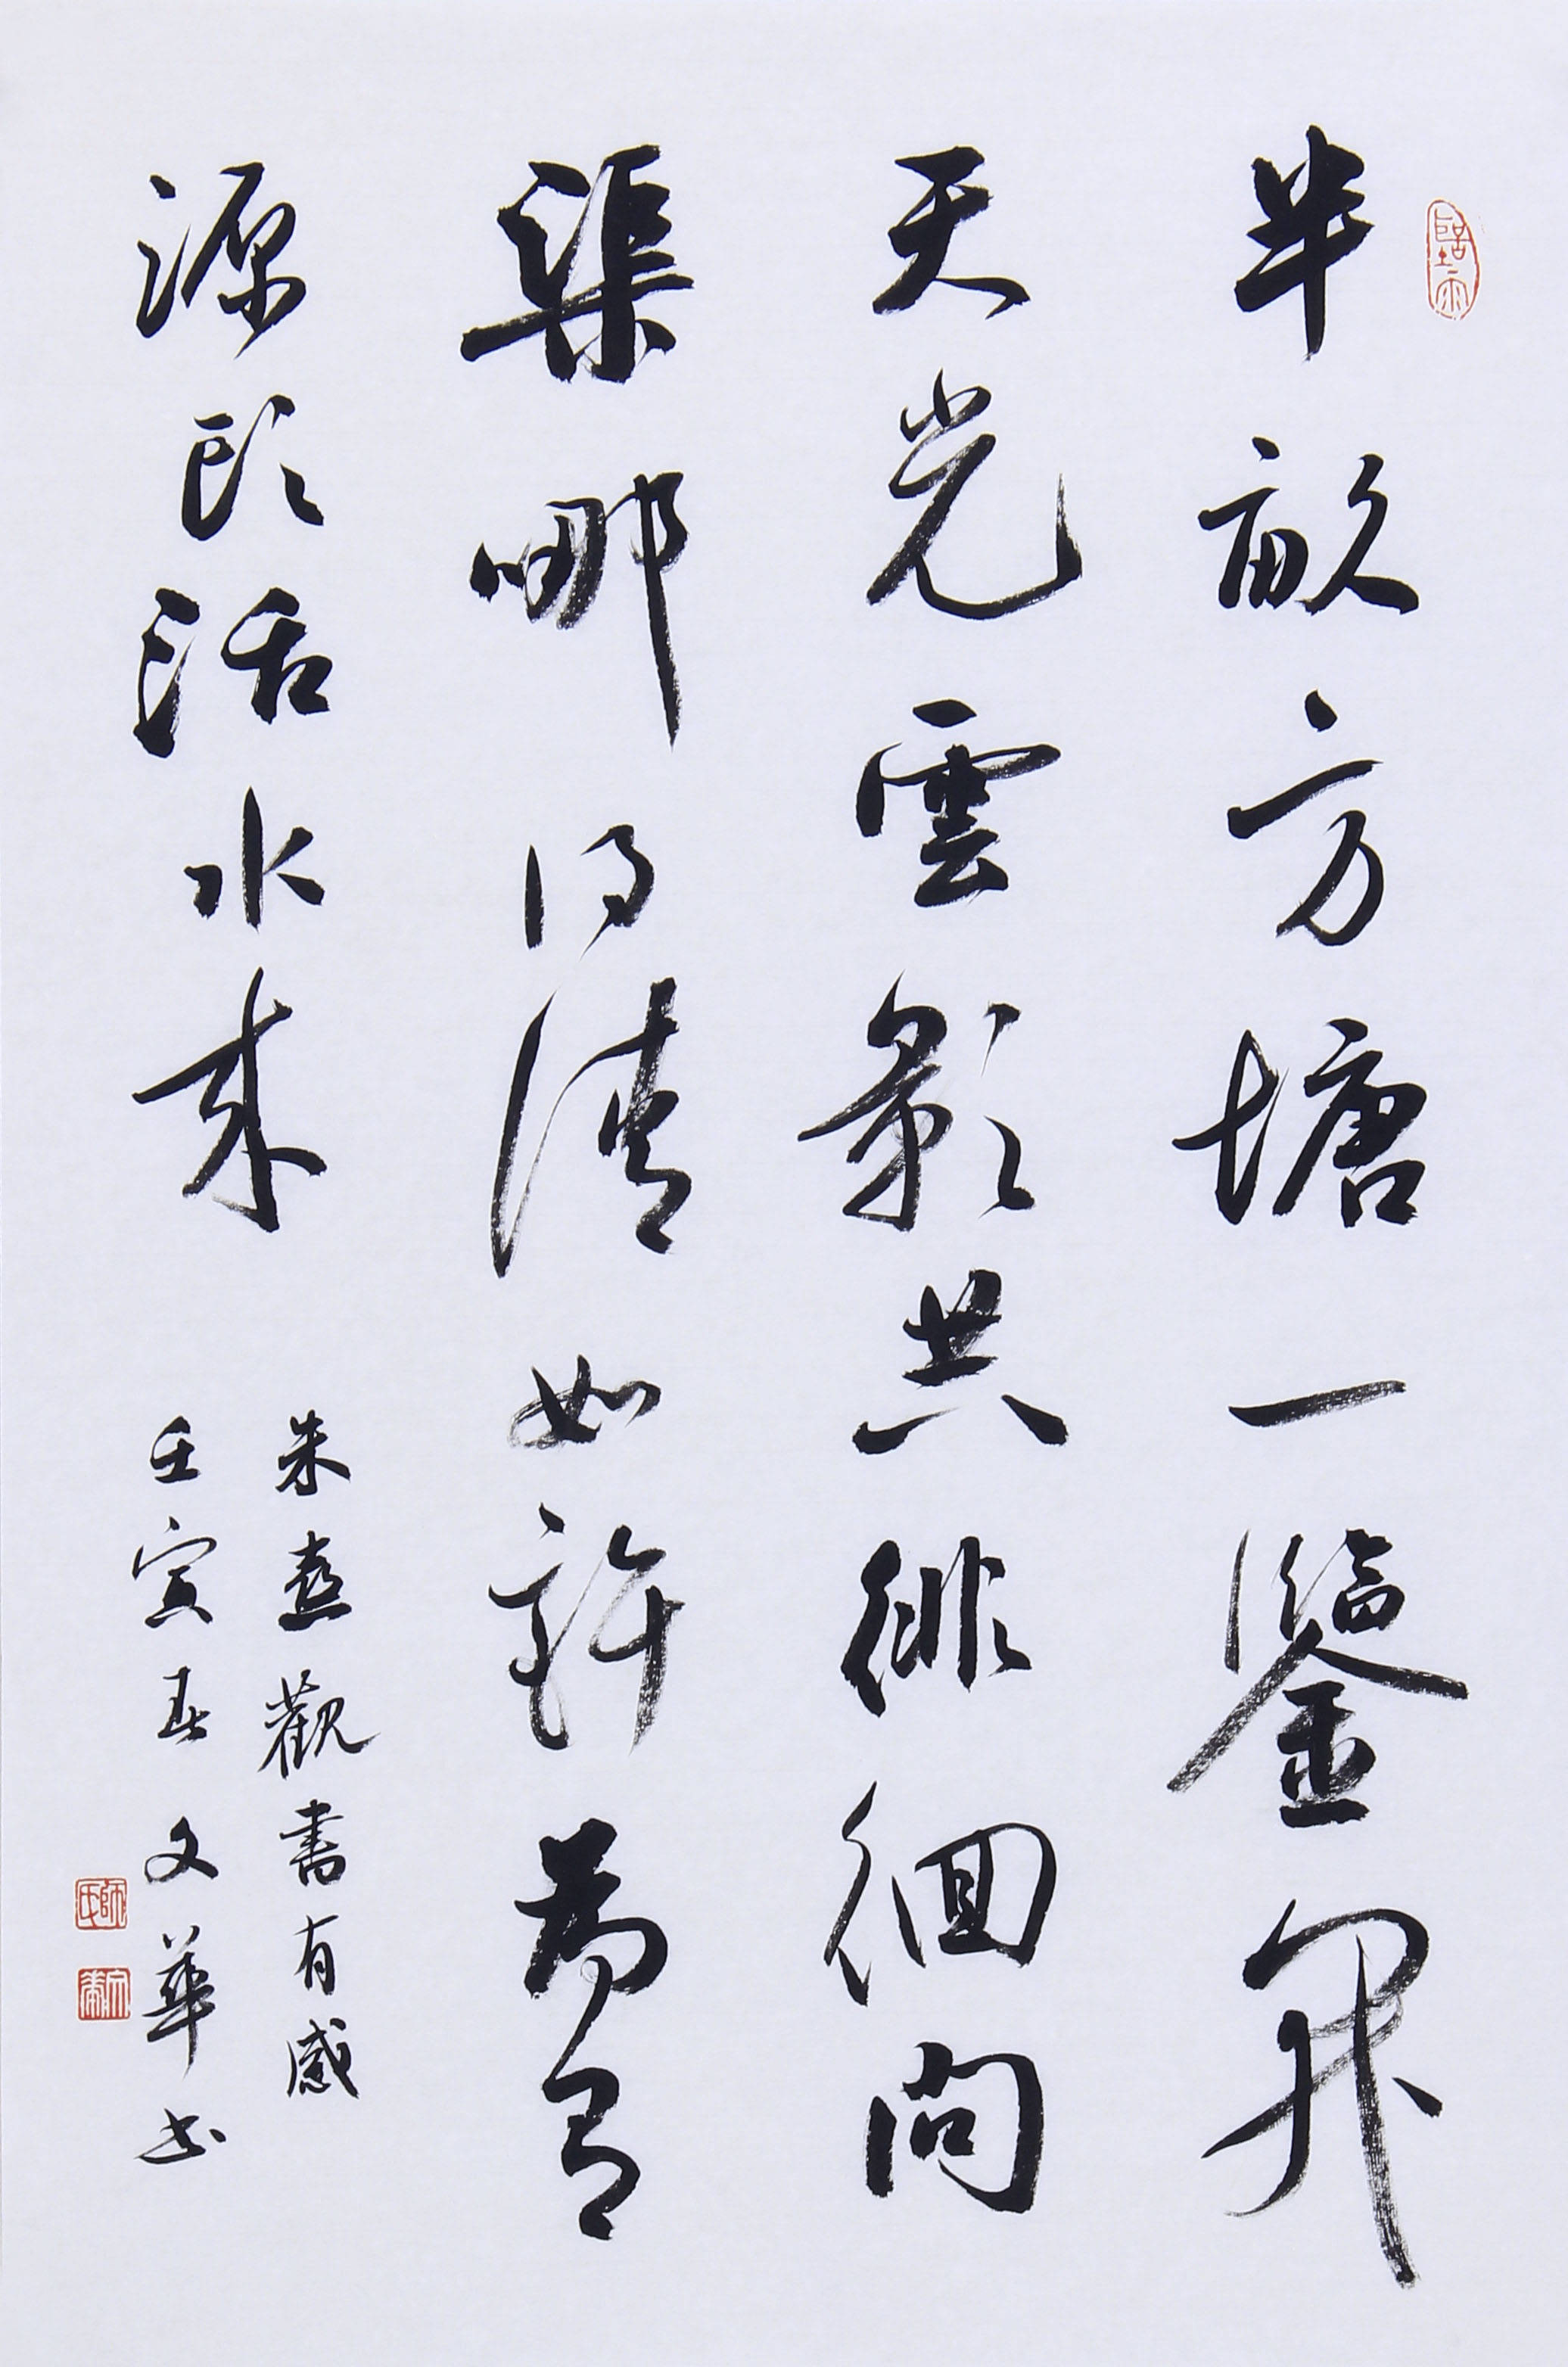 半畝方塘一鑒開
天光雲影共徘徊問
渠哪得清如許為有
源頭活水來
朱熹觀書有感
壬寅春文華書